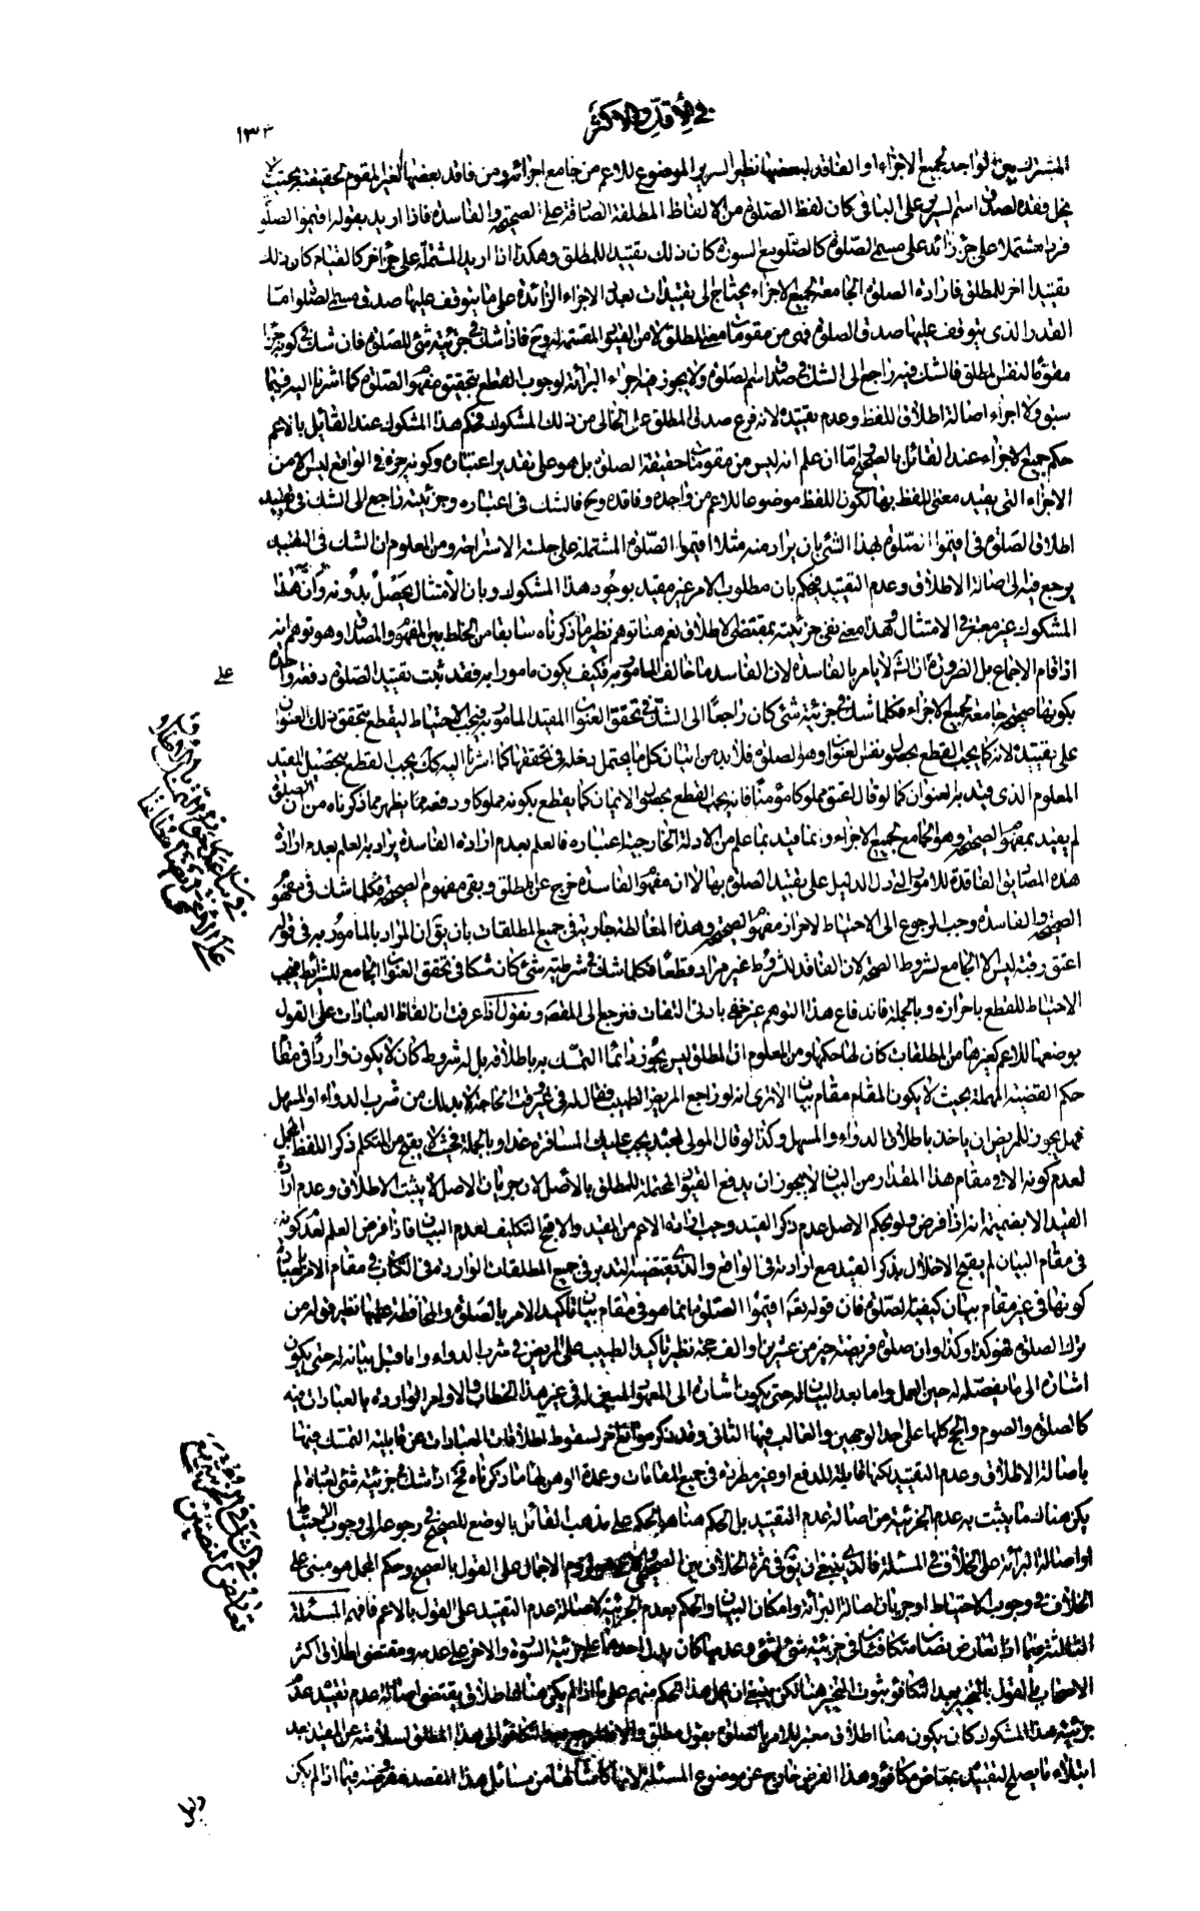 في الأقل والأكثر
١٣٣
المشترك بين الواجد لجميع الاجزاء او الفاقد لبعضها نظير السرير الموضوع للاعم من جامع اجزائه ومن فاقد بعضها الغير المقوم لحقيقته بحيث لا
يخل فقده لصدق اسم السرير على الباقى كان لفظ الصلوة من الالفاظ المطلقة الصادقة على الصحيحة والفاسدة فاذا اريد بقوله اقيموا الصلوة
فرد مشتمل على جزء زائد على مسمى الصلوة كالصلوة مع السورة كان ذلك تقييدا للمطلق وهكذا اذا اريد المشتملة على جزء اخر كالقيام كان ذلك
تقييدا اخر للمطلق فارادة الصلوة الجامعة لجميع الاجزاء يحتاج الى تقييدات بعدد الاجزاء الزائدة على ما يتوقف عليها صدق مسمى الصلوة اما
القدر الذى يتوقف عليها صدق الصلوة فهى من مقومات معنى المطلق لا من القيود المقسمة له وح فاذا شك فى جزئية شئ للصلوة فان شك فى كونه جزءا
مقوما لنفس المطلق فالشك فيه راجع الى الشك فى صدق اسم الصلوة ولا يجوز فيه اجراء البرائة لوجوب القطع بتحقق مفهوم الصلوة كما اشرنا اليه فيما
سبق ولا اجراء اصالة اطلاق اللفظ وعدم تقييده لانه فرع صدق المطلق على الخالى من ذلك المشكوك فحكم هذا المشكوك عند القائل بالاعم
حكم جميع الاجزاء عند القائل بالصحيح واما ان علم انه ليس من مقومات حقيقة الصلوة بل هو على تقدير اعتباره وكونه جزء فى الواقع ليس الا من
الاجزاء التى يقيد معنى اللفظ بها لكون اللفظ موضوعا للاعم من واجده وفاقده وح فالشك فى اعتباره وجزئيته راجع الى الشك فى تقييد
اطلاق الصلوة فى اقيموا الصلوة بهذا الشئ بان يراد منه مثلا اقيموا الصلوة المشتملة على جلسة الاستراحة ومن المعلوم ان الشك فى التقييد
يرجع فيه الى اصالة الاطلاق وعدم التقييد فيحكم بان مطلوب الامر غير مقيد بوجود هذا المشكوك وبان الامتثال يحصل بدونه وان هذا
المشكوك غير معتبر فى الامتثال وهذا معنى نفى جزئيته بمقتضى الاطلاق نعم هنا توهم نظير ما ذكرناه سابقا من الخلط بين المفهوم والمصداق وهو توهم انه
اذا قام الاجماع بل الضرورة على ان الشارع لا يامر بالفاسدة لان الفاسد ما خالف المامور به فكيف يكون مامورا به فقد ثبت تقييد الصلوة دفعة واحدة
على
بكونها صحيحة جامعة لجميع الاجزاء فكلما شك فى جزئية شئ كان راجعا الى الشك فى تحقق العنوان المقيد المامور به فيجب الاحتياط ليقطع بتحقق ذلك العنوان
على تقييده لانه كما يجب القطع بحصول نفس العنوان وهو الصلوة فلا بد من اتيان كل ما يحتمل دخله فى تحققها كما اشرنا اليه كك يجب القطع بتحصيل القيد
المعلوم الذى قيد به العنوان كما لو قال اعتق مملوكا مؤمنا فانه يجب القطع بحصول الايمان كما يقطع بكونه مملوكا ودفعه مما يظهر مما ذكرناه من ان الصلوة
لم يقيد بمفهوم الصحيحة وهو الجامع لجميع الاجزاء وانما قيد بما علم من الادلة الخارجية اعتباره فالعلم بعدم ارادة الفاسدة يراد به العلم بعدم ارادة
هذه المصاديق الفاقدة للامور التى دل الدليل على تقييد الصلوة بها لا ان مفهوم الفاسدة خرج عن المطلق وبقى مفهوم الصحيحة فكلما شك فى مفهوم
الصحيحة والفاسدة وجب الرجوع الى الاحتياط لاحراز مفهوم الصحيحة وهذه المغالطة جارية فى جميع المطلقات بان يق ان المراد بالمامور به فى قوله
اعتق رقبة ليس الا الجامع لشروط الصحة لان الفاقد للشروط غير مراد قطعا فكلما شك فى شرطية شئ كان شكا فى تحقق العنوان الجامع للشرائط فيجب
الاحتياط للقطع باحرازه وبالجملة فاندفاع هذا التوهم غير خفى بادنى التفات فنرجع الى المقصود ونقول اذا عرفت ان الفاظ العبادات على القول
بوضعها للاعم كغيرها من المطلقات كان لها حكمها ومن المعلوم ان المطلق ليس يجوز دائما التمسك به باطلاقه بل له شروط كان لا يكون واردا فى مقام
حكم القضية المهملة بحيث لا يكون المقام مقام بيان الا ترى انه لو راجع المريض الطبيب فقال له فى غير وقت الحاجة لا بد لك من شرب الدواء او المسهل
فهل يجوز للمريض ان ياخذ باطلاق الدواء والمسهل وكذا لو قال المولى لعبده يجب عليك المسافرة غدا وبالجملة فحيث لا يقبح من المتكلم ذكر اللفظ المجمل
لعدم كونه الا فى مقام هذا المقدار من البيان لا يجوز ان يدفع القيود المحتملة للمطلق بالاصل لان جريان الاصل لا يثبت الاطلاق وعدم ارادة
القيد الا بضميمة انه اذا فرض ولو بحكم الاصل عدم ذكر القيد وجب ارادة الاعم من المقيد والا قبح التكليف لعدم البيان فاذا فرض العلم بعدم كونه
فى مقام البيان لم يقبح الاخلال بذكر القيد مع ارادته فى الواقع والذى يقتضيه التدبر فى جميع المطلقات الواردة فى الكتاب فى مقام الامر بالعبادة
كونها فى غير مقام بيان كيفية الصلوة فان قوله تعالى اقيموا الصلوة انما هو فى مقام بيان تاكيد الامر بالصلوة والمحافظة عليها نظير قوله من
ترك الصلوة فهو كذا وكذا وان صلوة فريضة خير من عشرين او الف حجة نظير تاكيد الطبيب على المريض فى شرب الدواء اما قبل بيانه له حتى يكون
اشارة الى ما يفصله له حين العمل واما بعد البيان له حتى يكون اشارة الى المعهود المبين له فى غير هذا الخطاب والاوامر الواردة بالعبادات فيه
كالصلوة والصوم والحج كلها على احد الوجهين والغالب فيها الثانى وقد ذكر موانع اخر لسقوط اطلاقات العبادات عن قابلية التمسك فيها
باصالة الاطلاق وعدم التقييد لكنها قابلة للدفع او غير مطردة فى جميع المقامات وعمدة الوهن لها ما ذكرناه فح اذا شك فى جزئية شئ لعبادة لم
يكن هناك ما يثبت به عدم الجزئية من اصالة عدم التقييد بل الحكم هنا هو الحكم على مذهب القائل بالوضع للصحيح فى رجوعه الى وجوب الاحتياط
او اصالة البرائة على الخلاف فى المسئلة فالذى ينبغى ان يق فى ثمرة الخلاف بين الصحيحى والاعمى هو لزوم الاجمال على القول بالصحيح وحكم المجمل هو مبنى على
الخلاف فى وجوب الاحتياط او جريان اصالة البرائة وامكان البيان والحكم بعدم الجزئية لاصالة عدم التقييد على القول بالاعم فافهم المسئلة
الثالثة فيما اذا تعارض نصان متكافئان فى جزئية شئ لشئ وعدمها كان يدل احدهما على جزئية السورة والاخر على عدمه ومقتضى اطلاق اكثر
الاصحاب القول بالتخيير بعد التكافؤ ثبوت التخيير هنا لكن ينبغى ان يحمل هذا الحكم منهم على ما اذا لم يكن هناك اطلاق يقتضى اصالة عدم تقييده عدم
جزئية هذا المشكوك كان يكون هنا اطلاق معتبر للامر بالصلوة بقول مطلق والا فالمرجع بعد التكافؤ الى هذا المطلق لسلامته عن المقيد بعد
ابتلاء ما يصلح لتقييده بمعارض مكافؤ وهذا الفرض خارج عن موضوع المسئلة لانها كامثالها من مسائل هذا المقصد مفروضة فيما اذا لم يكن